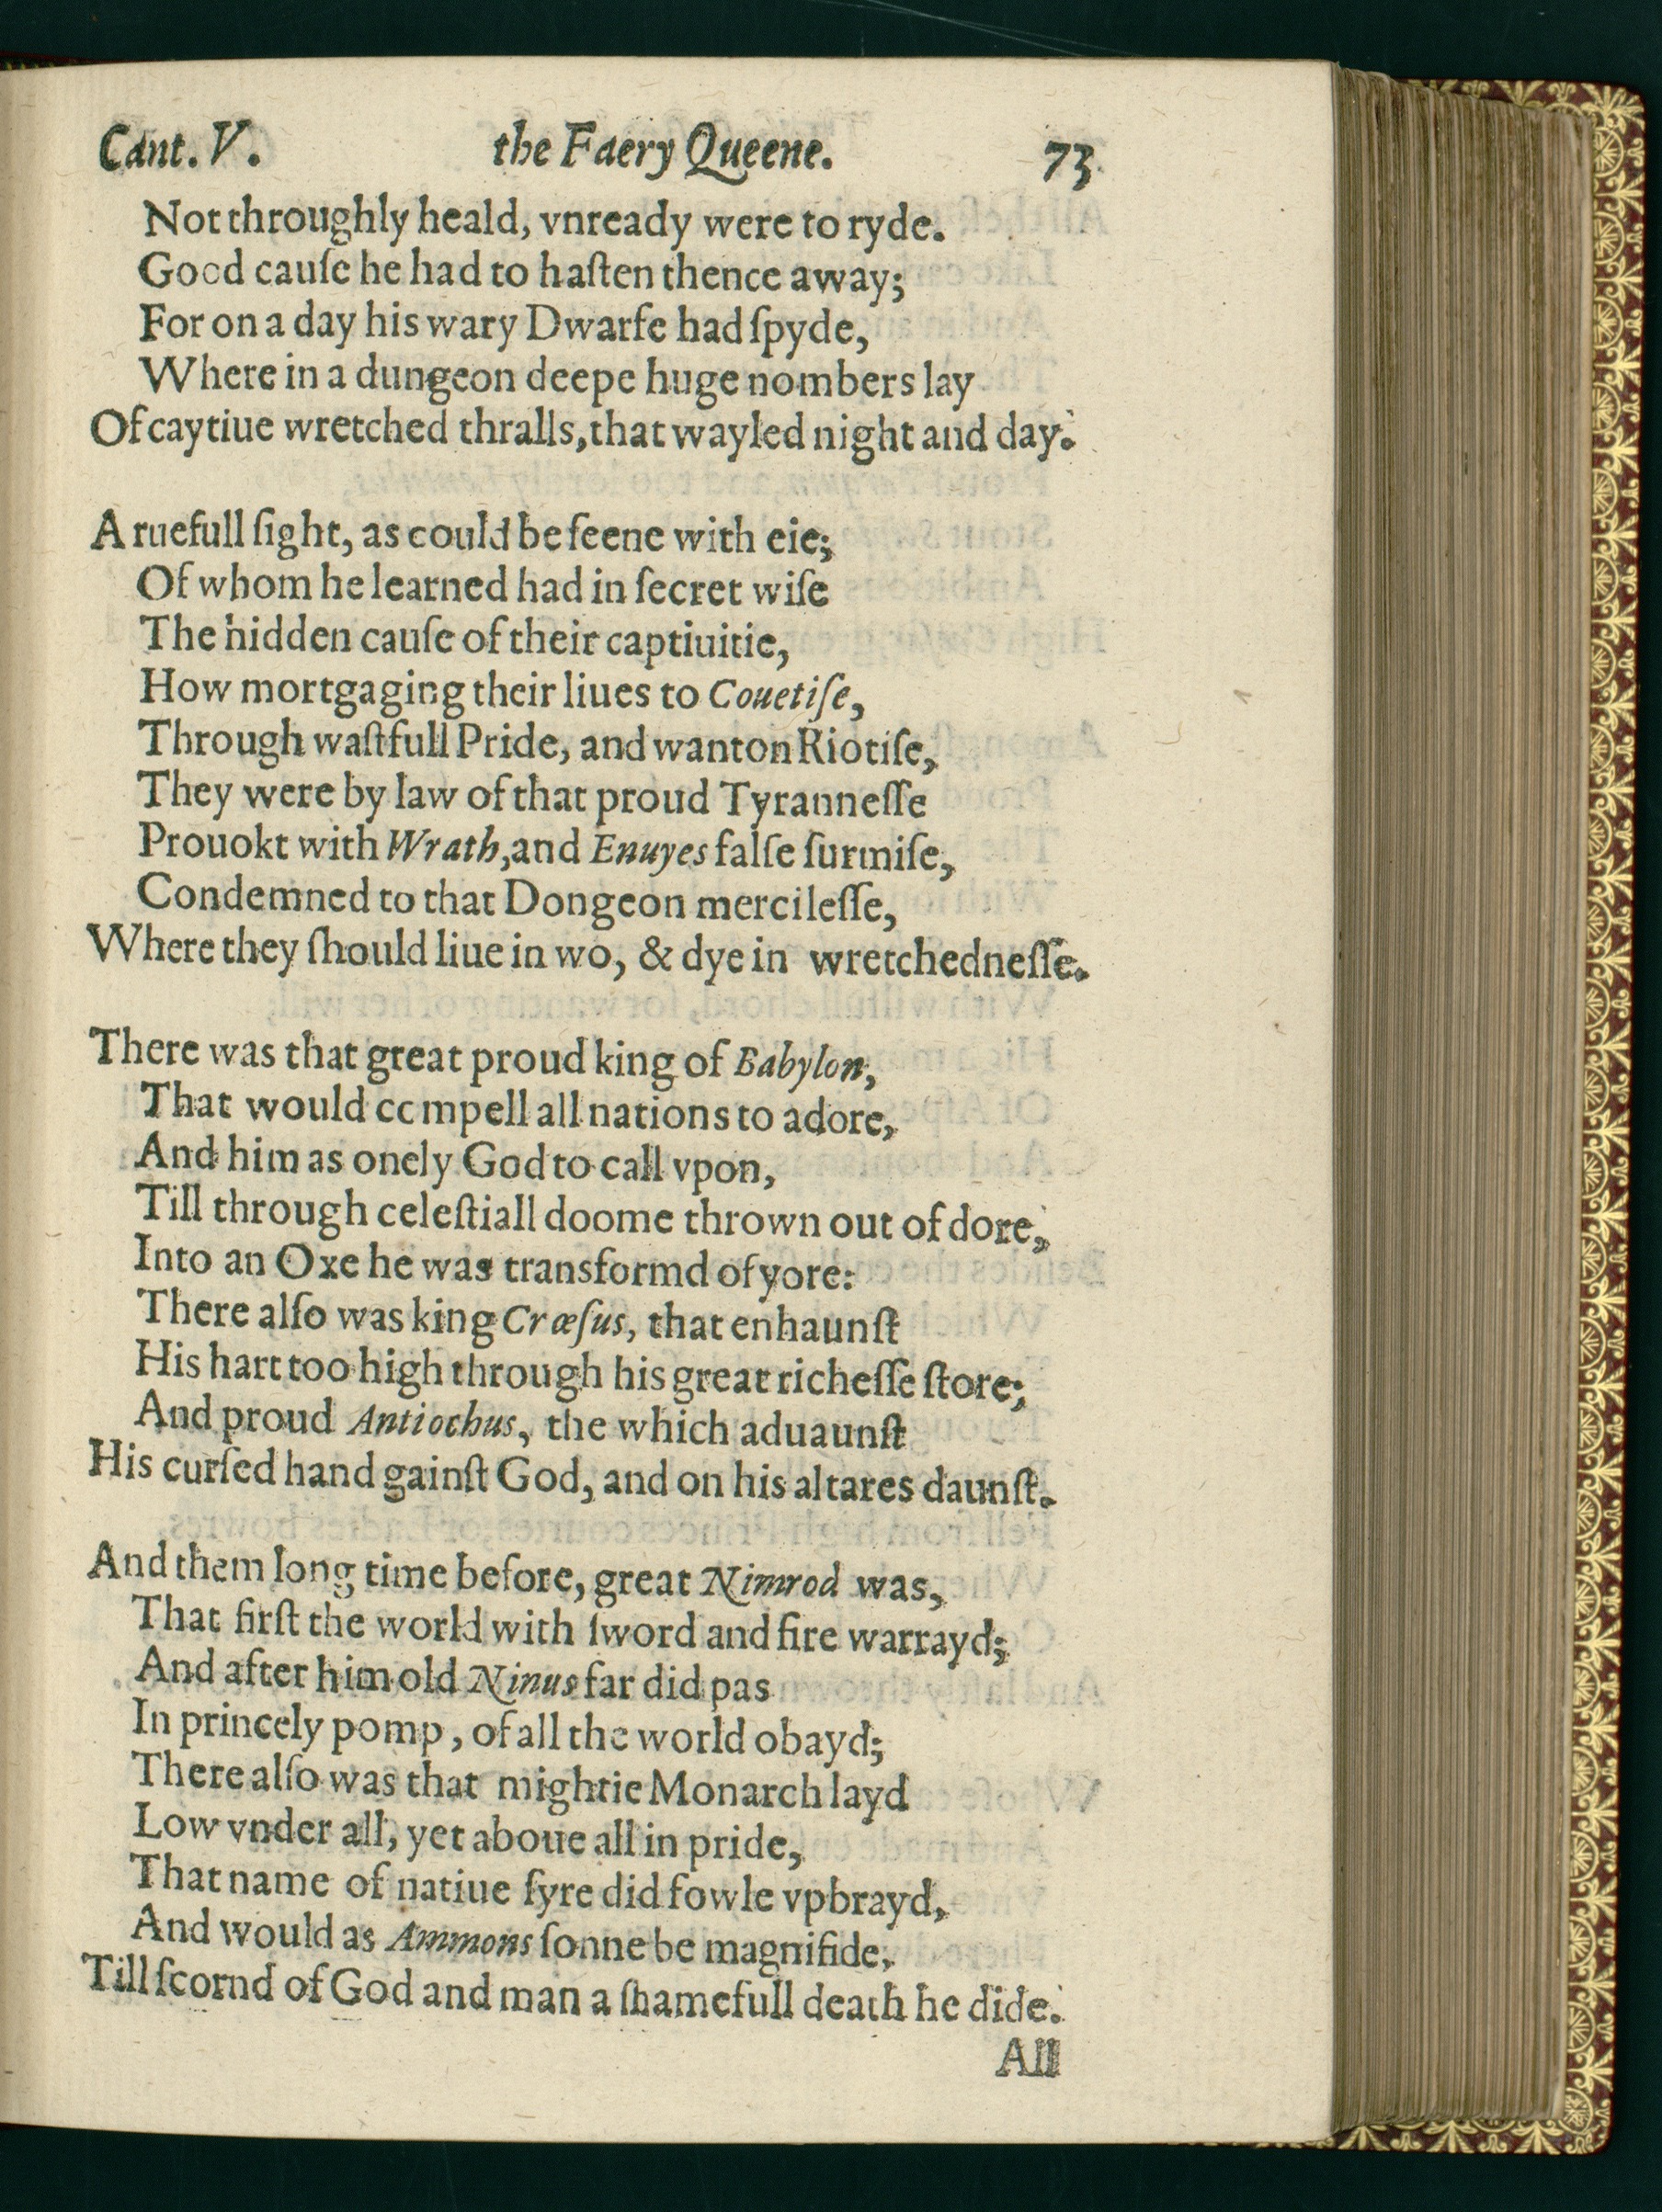 Cant. V. the Faery Queene. 73
Not throughly heald, vnready were to ryde.
Good cauſe he had to haſten thence away;
For on a day his wary Dwarfe had ſpyde,
Where in a dungeon deepe huge nombers lay
Of caytiue wretched thralls, that wayled night and day.
A ruefull ſight, as could be ſeene with eie;
Of whom he learned had in ſecret wiſe
The hidden cauſe of their captiuitie,
How mortgaging their liues to Couetiſe,
Through waſtfull Pride, and wanton Riotiſe,
They were by law of that proud Tyranneſſe
Prouokt with Wrath, and Enuyes falſe ſurmiſe,
Condemned to that Dongeon mercileſſe,
Where they ſhould liue in wo, & dye in wretchedneſſe.
There was that great proud king of Babylon,
That would compell all nations to adore,
And him as onely God to call vpon,
Till through celeſtiall doome thrown out of dore,
Into an Oxe he was transformd of yore:
There alſo was king Crœſus, that enhaunſt
His hart too high through his great richeſſe ſtore;
And proud Antiochus, the which aduaunſt
His curſed hand gainſt God, and on his altares daunſt.
And them long time before, great Nimrod was,
That firſt the world with ſword and fire warrayd;
And after him old Ninus far did pas
In princely pomp, of all the world obayd;
There alſo was that mightie Monarch layd
Low vnder all, yet aboue all in pride,
That name of natiue ſyre did fowle vpbrayd,
And would as Ammons ſonne be magnifide,
Till ſcornd of God and man a ſhamefull death he dide.
All